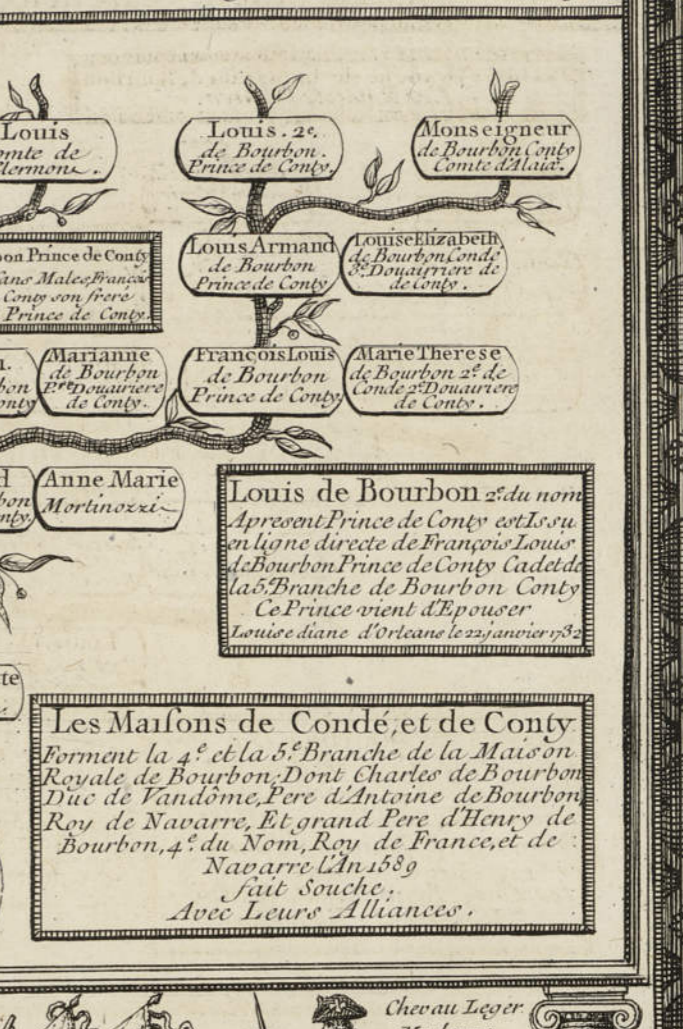 Louis
Comte de
Clermont.
Louis. 2e.
de Bourbon.
Prince de Conty.
Monseigneur
de Bourbon Conty
Comte d'Alaix.
bon Prince de Conty
Sans Males, François
Conty son frere
Prince de Conty.
Louis Armand
de Bourbon
Prince de Conty
Louise Elizabeth
de Bourbon Condé
3e. Douairriere de
de Conty.
bon
onty
Marianne
de Bourbon
P.re Douairiere
de Conty.
François Louis
de Bourbon
Prince de Conty
Marie Therese
de Bourbon 2e. de
Condé 2e. Douairiere
de Conty.
d
bon
nty.
Anne Marie
Mortinozzi
Louis de Bourbon 2e. du nom
Apresent Prince de Conty est Issu
en ligne directe de François Louis
de Bourbon Prince de Conty Cadet de
la 5e. Branche de Bourbon Conty
Ce Prince vient d'Epouser
Louise diane d'Orleans le 22 janvier 1732
te
Les Maiſons de Condé, et de Conty
Forment la 4e. et la 5e. Branche de la Maison
Royale de Bourbon; Dont Charles de Bourbon
Duc de Vandôme, Pere d'Antoine de Bourbon
Roy de Navarre, Et grand Pere d'Henry de
Bourbon, 4e. du Nom, Roy de France, et de
Navarre l'An 1589
fait Souche.
Avec Leurs Alliances.
Chevau Leger